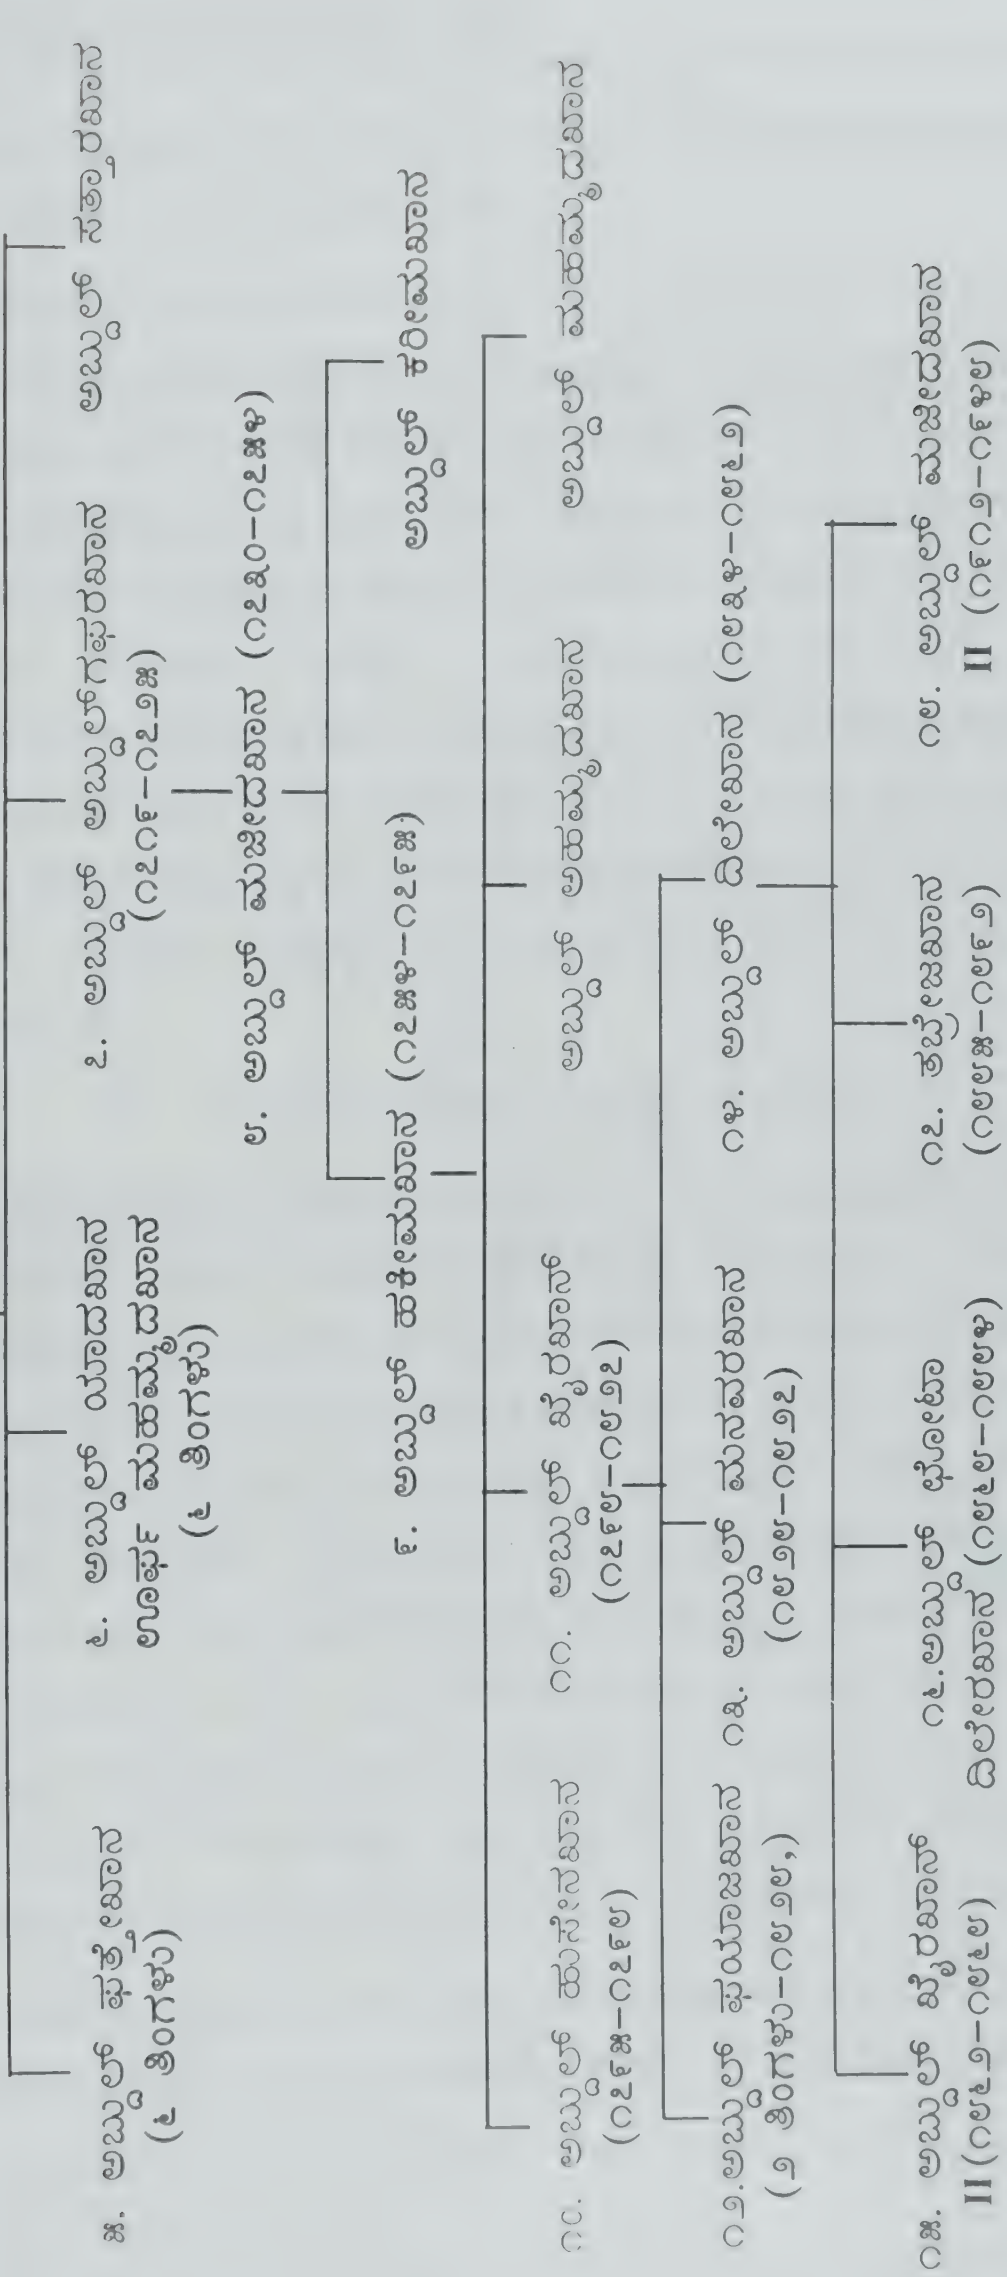 ೫. ಅಬ್ದುಲ್ ಫತ್ತೇಖಾನ
(೬ ತಿಂಗಳು)
೬. ಅಬ್ದುಲ್ ಯಾದಖಾನ
ಊರ್ಫ ಮಹಮ್ಮದಖಾನ
(೬ ತಿಂಗಳು)
೭. ಅಬ್ದುಲ್ ಅಬ್ದುಲ್‌ಗಫರಖಾನ
(೧೭೧೯–೧೭೨೫)
ಅಬ್ದುಲ್ ಸತ್ತಾರಖಾನ
೮. ಅಬ್ದುಲ್ ಮಜೀದಖಾನ (೧೭೩೦–೧೭೫೪)
೯. ಅಬ್ದುಲ್ ಹಕೀಮಖಾನ (೧೭೫೪–೧೭೯೫)
ಅಬ್ದುಲ್ ಕರೀಮಖಾನ
೧೦. ಅಬ್ದುಲ್ ಹುಸೇನಖಾನ
(೧೭೯೫–೧೭೯೮)
೧೧. ಅಬ್ದುಲ್ ಖೈರಖಾನ್
(೧೭೯೮–೧೮೨೭)
ಅಬ್ದುಲ್ ಅಹಮ್ಮದಖಾನ
ಅಬ್ದುಲ್ ಮಹಮ್ಮದಖಾನ
೧೨.ಅಬ್ದುಲ್ ಫಯಾಜಖಾನ
(೨ ತಿಂಗಳು–೧೮೨೮,)
೧೩. ಅಬ್ದುಲ್ ಮನವರಖಾನ
(೧೮೨೮–೧೮೨೭)
೧೪. ಅಬ್ದುಲ್ ದಿಲೇಖಾನ (೧೮೩೪–೧೮೬೨)
೧೫. ಅಬ್ದುಲ್ ಖೈರಖಾನ್
II (೧೮೬೨–೧೮೬೮)
೧೬.ಅಬ್ದುಲ್ ಛೋಟಾ
ದಿಲೇರಖಾನ (೧೮೬೮–೧೮೮೪)
೧೭. ತಬ್ರೇಜಖಾನ
(೧೮೮೫–೧೮೯೨)
೧೮. ಅಬ್ದುಲ್ ಮಜೀದಖಾನ
II (೧೯೦೨–೧೯೪೮)